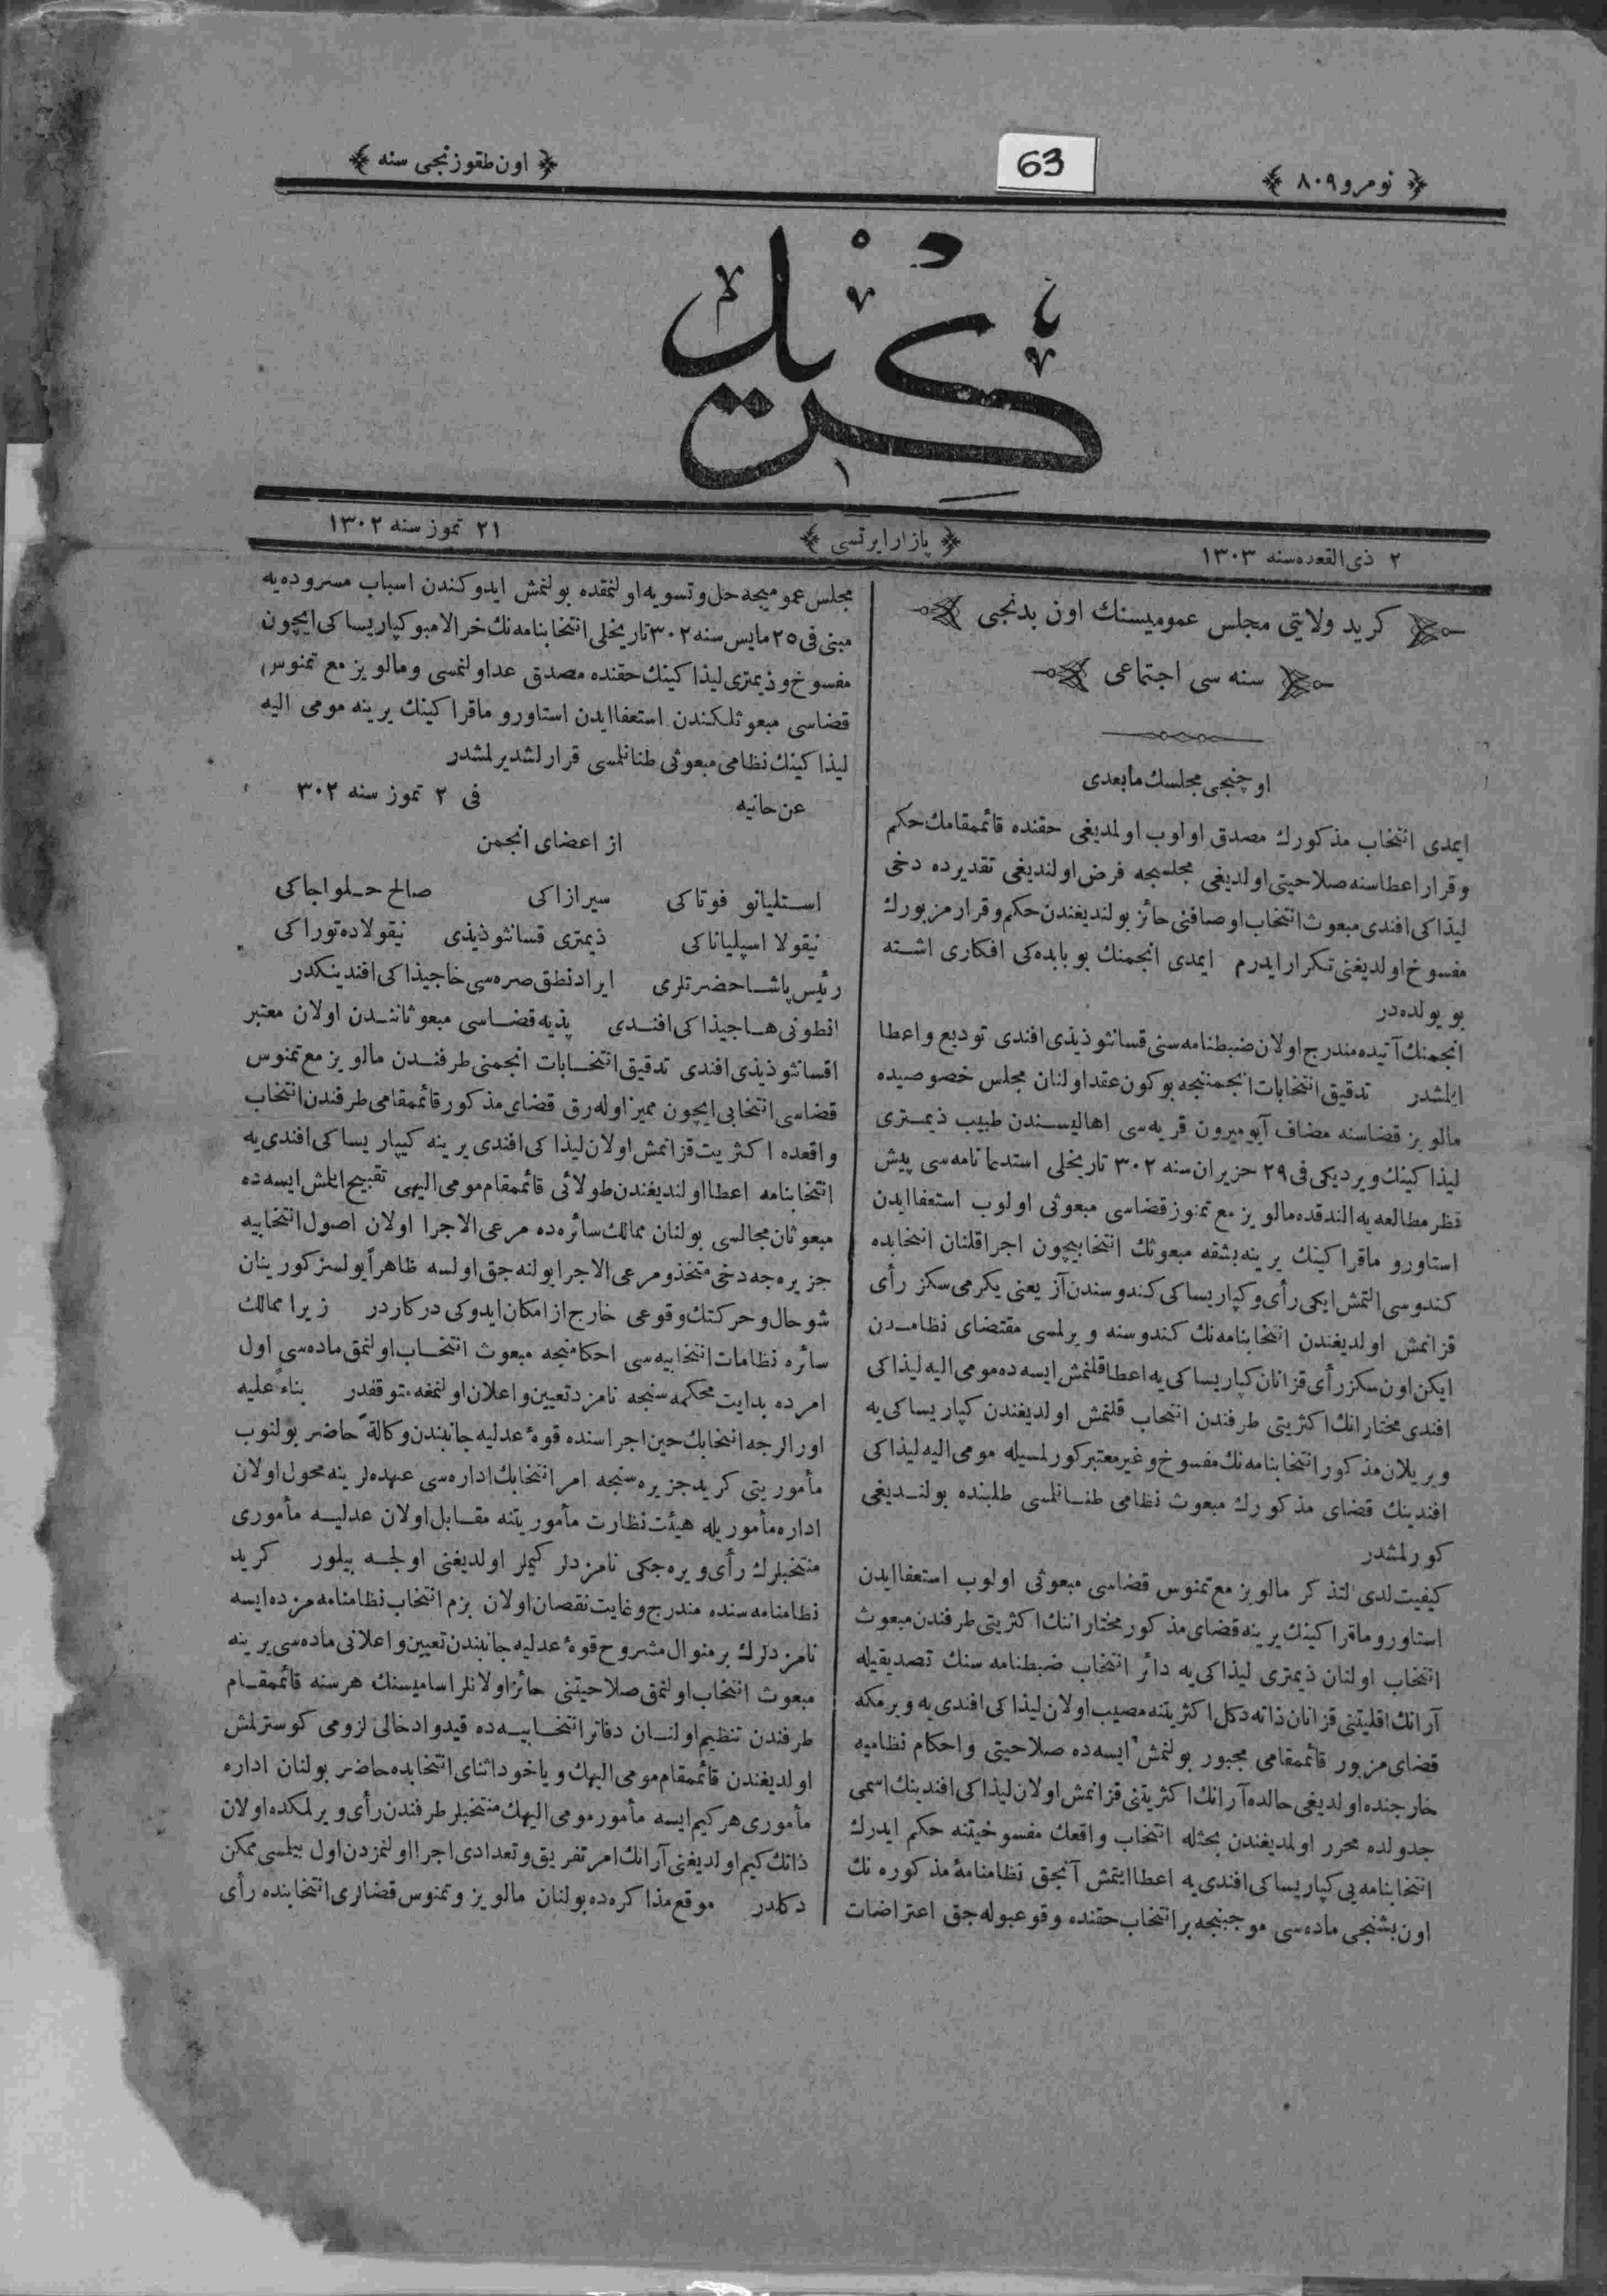 نومرو ٨٠٩
63
اون طقوزنجی سنه
كريد
٢ ذی القعده سنه ١٣٠٣
پازار ایرتسی
٢١ تموز سنه ١٣٠٢
كرید ولایتی مجلس عمومیسنك اون یدنجی
سنه سی اجتماعی
اوچنجی مجلسك مابعدی
ایمدی انتخاب مذكورك مصدق اولوب اولمدیغی حقنده قائممقامك حكم
وقرار اعطاسنه صلاحیتی اولدیغی مجلسجه فرض اولندیغی تقدیرده دخی
لیذاكی افندی مبعوث انتخاب اوصافنی حائز بولندیغندن حكم وقرار مزبورك
مفسوخ اولدیغنی تكرار ایدرم ایمدی انجمنك بوبابده كی افكاری اشته
بو یولده در
انجمنك آتیده مندرج اولان ضبطنامه سنی قسانثوذیذی افندی تودیع واعطا
ایلشدر تدقیق انتخابات انجمننجه بوكون عقد اولنان مجلس خصوصیده
مالویز قضاسنه مضاف آیومیرون قریه سی اهالیسندن طبیب ذیمتری
لیذاكینك ویردیكی فی ٢٩ حزیران سنه ٣٠٢ تاریخلی استدعانامه سی پیش
نظر مطالعه یه الندقده مالویز مع تمنوز قضاسی مبعوثی اولوب استعفا ایدن
استاورو ماقراكینك یرینه بشقه مبعوثك انتخابیچون اجرا قلنان انتخابده
كندوسی التمش ایكی رأی و كپاریساكی كندوسندن آز یعنی یكرمی سكز رأی
قزانمش اولدیغندن انتخابنامه نك كندوسنه ویرلمسی مقتضای نظامدن
ایكن اون سكز رأی قزانان كپاریساكی یه اعطا قلنمش ایسه ده مومی الیه لیذاكی
افندی مختارانك اكثریتی طرفندن انتخاب قلنمش اولدیغندن كپاریساكی یه
ویریلان مذكور انتخابنامه نك مفسوخ وغیر معتبر كورلمسیله مومی الیه لیذاكی
افندینك قضای مذكورك مبعوث نظامی طنانلمسی طلبنده بولندیغی
كورلمشدر
كیفیت لدی التذكر مالویز مع تمنوس قضاسی مبعوثی اولوب استعفا ایدن
استاورو ماقراكینك یرینه قضای مذكور مختاراننك اكثریتی طرفندن مبعوث
انتخاب اولنان ذیمتری لیذاكی یه دائر انتخاب ضبطنامه سنك تصدیقیله
آرانك اقلیتنی قزانان ذاته دكل اكثریتنه مصیب اولان لیذاكی افندی یه ویرمكه
قضای مزبور قائممقامی مجبور بولنمش ایسه ده صلاحیتی واحكام نظامیه
خارجنده اولدیغی حالده آرانك اكثریتنی قزانمش اولان لیذاكی افندینك اسمی
جدولده محرر اولمدیغندن بحثله انتخاب واقعك مفسوخیتنه حكم ایدرك
انتخابنامه یی كپاریساكی افندی یه اعطا ایتمش آنجق نظامنامهٔ مذكوره نك
اون بشنجی ماده سی موجبنجه بر انتخاب حقنده وقوعبوله جق اعتراضات
مجلس عمومیجه حل وتسویه اولنمقده بولنمش ایدوكندن اسباب مسروده یه
مبنی فی ٢٥ مایس سنه ٣٠٢ تاریخلی انتخابنامه نك خرالامبو كپاریساكی ایچون
مفسوخ وذیمتری لیذاكینك حقنده مصدق عد اولنمسی ومالویز مع تمنوس
قضاسی مبعوثلكندن استعفا ایدن استاورو ماقراكینك یرینه مومی الیه
لیذاكینك نظامی مبعوثی طنانلمسی قرارلشدیرلمشدر
عن حانیه فی ٢ تموز سنه ٣٠٢
از اعضای انجمن
استلیانو فوتاكی سیرازاكی صالح حلواجاكی
نیقولا اسپلیاناكی ذیمتری قسانثوذیذی نیقولاده توراكی
رئیس پاشا حضرتلری ایراد نطق صره سی خاجیذاكی افندینكدر
انطونی هاجیذاكی افندی پذیه قضاسی مبعوثانندن اولان معتبر
اقسانثوذیذی افندی تدقیق انتخابات انجمنی طرفندن مالویز مع تمنوس
قضاسی انتخابی ایچون ممیز اوله رق قضای مذكور قائممقامی طرفندن انتخاب
واقعده اكثریت قزانمش اولان لیذاكی افندی یرینه كیپاریساكی افندی یه
انتخابنامه اعطا اولندیغندن طولائی قائممقام مومی الیهی تقبیح ایلمش ایسه ده
مبعوثان مجالسی بولنان ممالك سائره ده مرعی الاجرا اولان اصول انتخابیه
جزیره جه دخی متخذ ومرعی الاجرا بولنه جق اولسه ظاهراً یولسز كورینان
شو حال وحركتك وقوعی خارج از امكان ایدوكی دركاردر زیرا ممالك
سائره نظامات انتخابیه سی احكامنجه مبعوث انتخاب اولنمق ماده سی اول
امرده بدایت محكمه سنجه نامزد تعیین واعلان اولنمغه متوقفدر بناءً علیه
اورالرجه انتخابك حین اجراسنده قوهٔ عدلیه جانبندن وكالةً حاضر بولنوب
مأموریتی كرید جزیره سنجه امر انتخابك اداره سی عهده لرینه محول اولان
اداره مأموریله هیئت نظارت مأموریتنه مقابل اولان عدلیه مأموری
منتخبلرك رأی ویره جكی نامزدلر كیملر اولدیغنی اولجه بیلور كرید
نظامنامه سنده مندرج وغایت نقصان اولان بزم انتخاب نظامنامه مزده ایسه
نامزدلرك بر منوال مشروح قوهٔ عدلیه جانبندن تعیین واعلانی ماده سی یرینه
مبعوث انتخاب اولنمق صلاحیتنی حائز اولانلر اسامیسنك هر سنه قائممقام
طرفندن تنظیم اولنان دفاتر انتخابیه ده قید وادخالی لزومی كوسترلمش
اولدیغندن قائممقام مومی الیهك ویاخود اثنای انتخابده حاضر بولنان اداره
مأموری هر كیم ایسه مأمور مومی الیهك منتخبلر طرفندن رأی ویرلمكده اولان
ذاتك كیم اولدیغنی آرانك امر تفریق وتعدادی اجرا اولنمزدن اول بیلمسی ممكن
دكلدر موقع مذاكره ده بولنان مالویز وتمنوس قضالری انتخابنده رأی